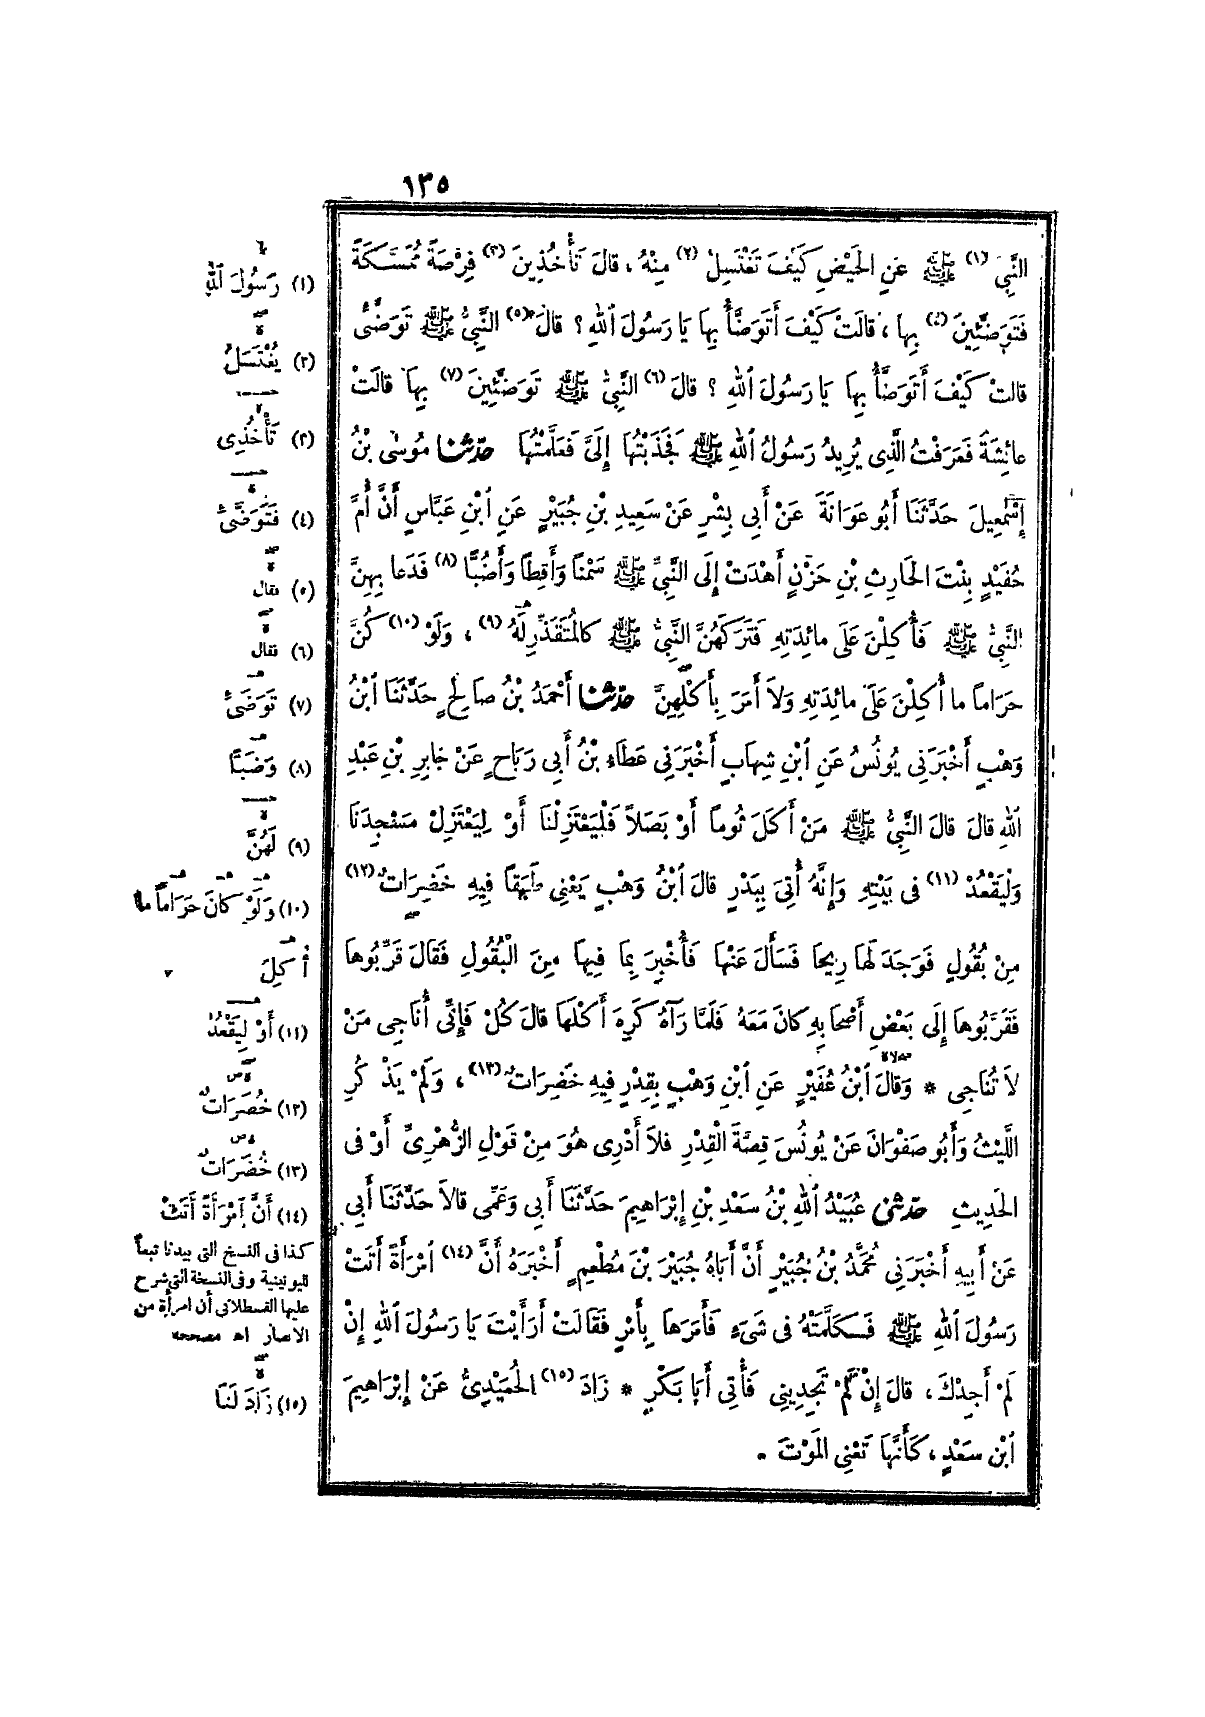 ١٣٥
النَّبِيَّ (١) ﷺ عَنِ الْحَيْضِ كَيْفَ تَغْتَسِلُ (٢) مِنْهُ ، قالَ تَأْخُذِينَ (٣) فِرْصَةً مُمَسَّكَةً
فَتَوَضَّئِينَ (٤) بِهَا ، قالَتْ كَيْفَ أَتَوَضَّأُ بِهَا يَا رَسُولَ اللهِ ؟ قالَ (٥) النَّبِيُّ ﷺ تَوَضَّئِي
قالتْ كَيْفَ أَتَوَضَّأُ بِهَا يَا رَسُولَ اللهِ ؟ قالَ (٦) النَّبِيُّ ﷺ تَوَضَّئِينَ (٧) بِهَا قالَتْ
عائِشَةُ فَعَرَفْتُ الَّذِى يُرِيدُ رَسُولُ اللهِ ﷺ فَجَذَبْتُهَا إِلَىَّ فَعَلَّمْتُهَا حَدَّثَنَا مُوسَى بْنُ
إِسْمَعِيلَ حَدَّثَنَا أَبُو عَوَانَةَ عَنْ أَبِى بِشْرٍ عَنْ سَعِيدِ بْنِ جُبَيْرٍ عَنِ ابْنِ عَبَّاسٍ أَنَّ أُمَّ
حُفَيْدٍ بِنْتَ الْحَارِثِ بْنِ حَزْنٍ أَهْدَتْ إِلَى النَّبِىِّ ﷺ سَمْنًا وَأَقِطًا وَأَضُبًّا (٨) فَدَعا بِهِنَّ
النَّبِىُّ ﷺ فَأُكِلْنَ عَلَى مائِدَتِهِ فَتَرَكَهُنَّ النَّبِىُّ ﷺ كالْمُتَقَذِّرِ لَهُ (٩) ، وَلَوْ (١٠) كُنَّ
حَرَامًا ما أُكِلْنَ عَلَى مائِدَتِهِ وَلاَ أَمَرَ بِأَكْلِهِنَّ حَدَّثَنَا أَحْمَدُ بْنُ صَالِحٍ حَدَّثَنَا ابْنُ
وَهْبٍ أَخْبَرَنِى يُونُسُ عَنِ ابْنِ شِهَابٍ أَخْبَرَنِى عَطَاءُ بْنُ أَبِى رَبَاحٍ عَنْ جابِرِ بْنِ عَبْدِ
اللهِ قالَ قالَ النَّبِىُّ ﷺ مَنْ أَكَلَ ثُومًا أَوْ بَصَلاً فَلْيَعْتَزِلْنَا أَوْ لِيَعْتَزِلْ مَسْجِدَنَا
وَلْيَقْعُدْ (١١) فى بَيْتِهِ وَإِنَّهُ أُتِىَ بِبَدْرٍ قالَ ابْنُ وَهْبٍ يَعْنِى طَبَقًا فِيهِ خَضِرَاتٌ (١٢)
مِنْ بُقُولٍ فَوَجَدَ لَهَا رِيحًا فَسَأَلَ عَنْهَا فَأُخْبِرَ بِمَا فِيهَا مِنَ الْبُقُولِ فَقَالَ قَرِّبُوهَا
فَقَرَّبُوهَا إِلَى بَعْضِ أَصْحَابِهِ كانَ مَعَهُ فَلَمَّا رَآهُ كَرِهَ أَكْلَهَا قالَ كُلْ فَإِنِّى أُنَاجِى مَنْ
لاَ تُنَاجِى * وَقالَ ابْنُ عُفَيْرٍ عَنِ ابْنِ وَهْبٍ بِقِدْرٍ فِيهِ خَضِرَاتٌ (١٣) ، وَلَمْ يَذْكُرِ
اللَّيْثُ وَأَبُو صَفْوَانَ عَنْ يُونُسَ قِصَّةَ الْقِدْرِ فلاَ أَدْرِى هُوَ مِنْ قَوْلِ الزُّهْرِىِّ أَوْ فى
الْحَدِيثِ حَدَّثَنِى عُبَيْدُ اللهِ بْنُ سَعْدِ بْنِ إِبْرَاهِيمَ حَدَّثَنَا أَبِى وَعَمِّى قالاَ حَدَّثَنَا أَبِى
عَنْ أَبِيهِ أَخْبَرَنِى مُحَمَّدُ بْنُ جُبَيْرٍ أَنَّ أَبَاهُ جُبَيْرَ بْنَ مُطْعِمٍ أَخْبَرَهُ أَنَّ (١٤) امْرَأَةً أَتَتْ
رَسُولَ اللهِ ﷺ فَكَلَّمَتْهُ فى شَىْءٍ فَأَمَرَهَا بِأَمْرٍ فَقَالَتْ أَرَأَيْتَ يَا رَسُولَ اللهِ إِنْ
لَمْ أَجِدْكَ ، قالَ إِنْ لَمْ تَجِدِينِى فَأْتِى أَبَا بَكْرٍ * زَادَ (١٥) الْحُمَيْدِىُّ عَنْ إِبْرَاهِيمَ
ابْنِ سَعْدٍ ، كَأَنَّهَا تَعْنِى الْمَوْتَ .
(١) رَسُولَ اللهِ
(٢) يُغْتَسَلُ
(٣) تَأْخُذِى
(٤) فَتَوَضَّىْ
(٥) فقال
(٦) فقال
(٧) تَوَضَّىْ
(٨) وَضَبًّا
(٩) لَهُنَّ
(١٠) وَلَوْ كانَ حَرَامًا ما
أُكِلَ
(١١) أَوْ لِيَقْعُدْ
(١٢) خُضَرَاتٌ
(١٣) خُضَرَاتٌ
(١٤) أَنَّ امْرَأَةً أَتَتْ
كذا فى النسخ التى بيدنا تبعاً
لليونينية وفى النسخة التى شرح
عليها القسطلانى أن امرأة من
الانصار اه مصححه
(١٥) زَادَ لَنَا